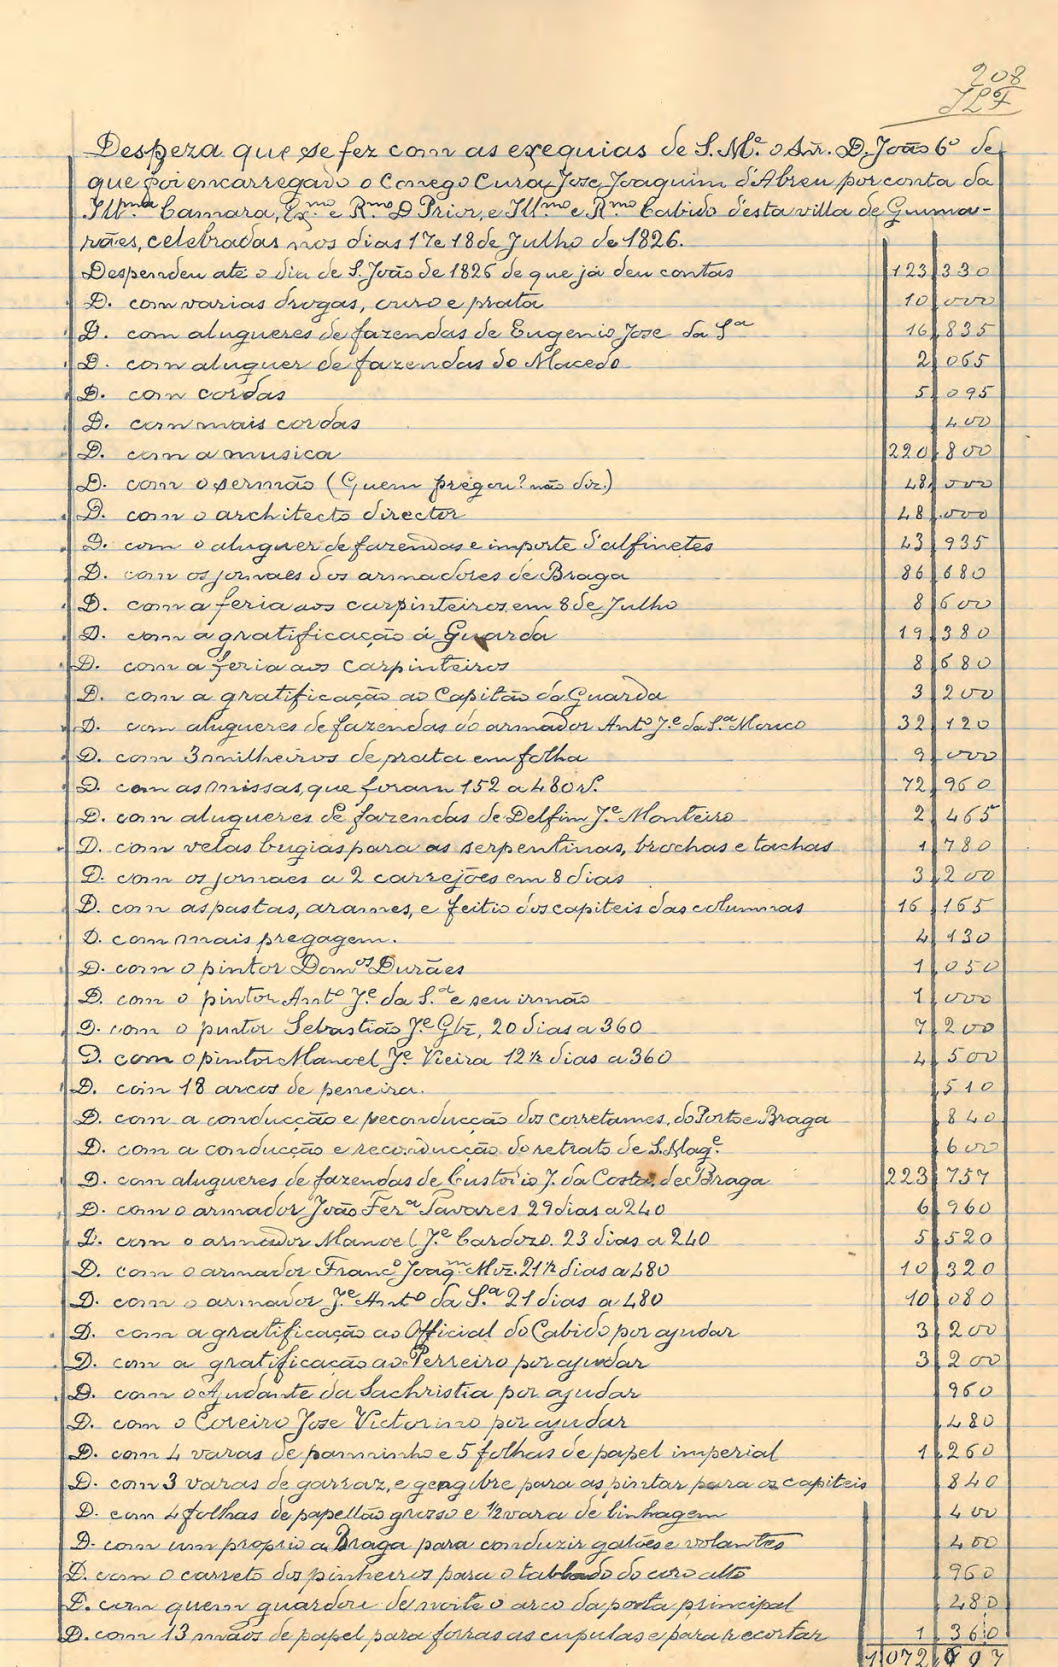 208
JLF
Despeza que se fez com as exequias de S. M.e o Snr. D. João 6º de
que foi encarregado o Conego Cura, Jose Joaquim d'Abreu por conta da
Ill.ma Camara, Ex.mo e R.mo D Prior, e Ill.mo e R.mo Cabido d'esta villa de Guima-
rães, celebradas nos dias 17 e 18 de Julho de 1826.
Despendeu até o dia de S. João de 1826 de que já deu contas 123,330
D. com varias drogas, ouro e prata 10,000
D. com alugueres de fazendas de Eugenio Jose da S.a 16,835
D. com aluguer de fazendas do Macedo 2,065
D. com cordas 5,095
D. com mais cordas 400
D. com a musica 220,800
D. com o sermão (Quem prégou? não diz.) 48,000
D. com o architecto director 48,000
D. com o aluguer de fazendas e importe d'alfinetes 43,935
D. com os jornaes dos armadores de Braga 86,680
D. com a feria aos carpinteiros em 8 de Julho 8,600
D. com a gratificação á Guarda 19,380
D. com a feria aos carpinteiros 8,680
D. com a gratificação ao Capitão da Guarda 3,200
D. com alugueres de fazendas do armador Ant.o J.e da S.a Mouco 32,120
D. com 3 milheiros de prata em folha 9,000
D. com as missas, que foram 152 a 480 rs. 72,960
D. com alugueres de fazendas de Delfim J.e Monteiro 2,465
D. com velas bugias para as serpentinas, brochas e tachas 1,780
D. com os jornaes a 2 carrejões em 8 dias 3,200
D. com as pastas, arames, e feitio dos capiteis das columnas 16,165
D. com mais pregagem. 4,130
D. com o pintor Dom.os Durães 1,050
D. com o pintor Ant.o J.e da S.a e seu irmão 1,000
D. com o pintor Sebastião J.e Glz, 20 dias a 360 7,200
D. com o pintor Manoel J.e Vieira 12½ dias a 360 4,500
D. com 18 arcos de peneira. ,510
D. com a conducção e reconducção dos corretames, do Porto e Braga ,840
D. com a conducção e reconducção do retrato de S. Mag.e ,600
D. com alugueres de fazendas de Custodio J. da Costa, de Braga 223,757
D. com o armador João Fer.a Tavares 29 dias a 240 6,960
D. com o armador Manoel J.e Cardozo. 23 dias a 240 5,520
D. com o armador Franc.o Joaq.m Miz. 21½ dias a 480 10,320
D. com o armador J.e Ant.o da S.a 21 dias a 480 10,080
D. com a gratificação ao Official do Cabido por ajudar 3,200
D. com a gratificação ao Perreiro por ajudar 3,200
D. com o Ajudante da Sachristia por ajudar 960
D. com o Coreiro Jose Victorino por ajudar ,480
D. com 4 varas de panninho e 5 folhas de papel imperial 1,260
D. com 3 varas de garraz, e gengibre para as pintar para os capiteis 840
D. com 4 folhas de papellão grosso e ½ vara de linhagem 400
D. com um proprio a Braga para conduzir galões e volantes 400
D. com o carreto dos pinheiros para o tablado do coro alto 960
D. com quem guardou de noite o arco da porta principal 280
D. com 13 mãos de papel para forrar as cupulas e para recortar 1,360
1,072,